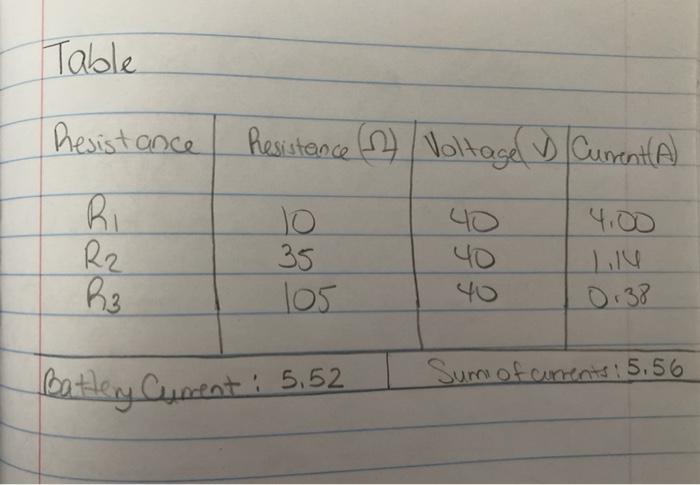 Table
Resistance Resistance (Ω) Voltage(V) Current(A)
R1 10 40 4.00
R2 35 40 1.14
R3 105 40 0.38
Battery Current: 5.52 Sum of currents: 5.56